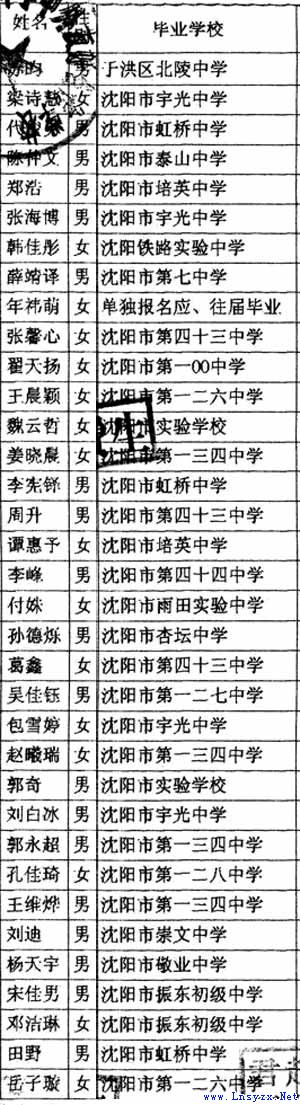 姓名 性别 毕业学校
男 于洪区北陵中学
梁诗慧 女 沈阳市宇光中学
代 男 沈阳市虹桥中学
陈仲文 男 沈阳市泰山中学
郑浩 男 沈阳市培英中学
张海博 男 沈阳市宇光中学
韩佳彤 女 沈阳铁路实验中学
薛靖译 男 沈阳市第七中学
年祎萌 女 单独报名应、往届毕业
张馨心 女 沈阳市第四十三中学
翟天扬 女 沈阳市第一00中学
王晨颖 女 沈阳市第一二六中学
魏云哲 女 沈阳市实验学校
姜晓晨 女 沈阳市第一三四中学
李宪铧 男 沈阳市虹桥中学
周升 男 沈阳市第四十三中学
谭惠予 女 沈阳市培英中学
李峰 男 沈阳市第四十四中学
付姝 女 沈阳市雨田实验中学
孙德烁 男 沈阳市杏坛中学
葛鑫 女 沈阳市第四十三中学
吴佳钰 男 沈阳市第一二七中学
包雪婷 女 沈阳市宇光中学
赵曦瑞 女 沈阳市第一三四中学
郭奇 男 沈阳市实验学校
刘白冰 男 沈阳市宇光中学
郭永超 男 沈阳市第一三四中学
孔佳琦 女 沈阳市第一二八中学
王维烨 男 沈阳市第一三四中学
刘迪 男 沈阳市崇文中学
杨天宇 男 沈阳市敬业中学
宋佳男 男 沈阳市振东初级中学
邓洁琳 女 沈阳市振东初级中学
田野 男 沈阳市虹桥中学
岳子璇 女 沈阳市第一二六中学
www.Lnsyzx.Net